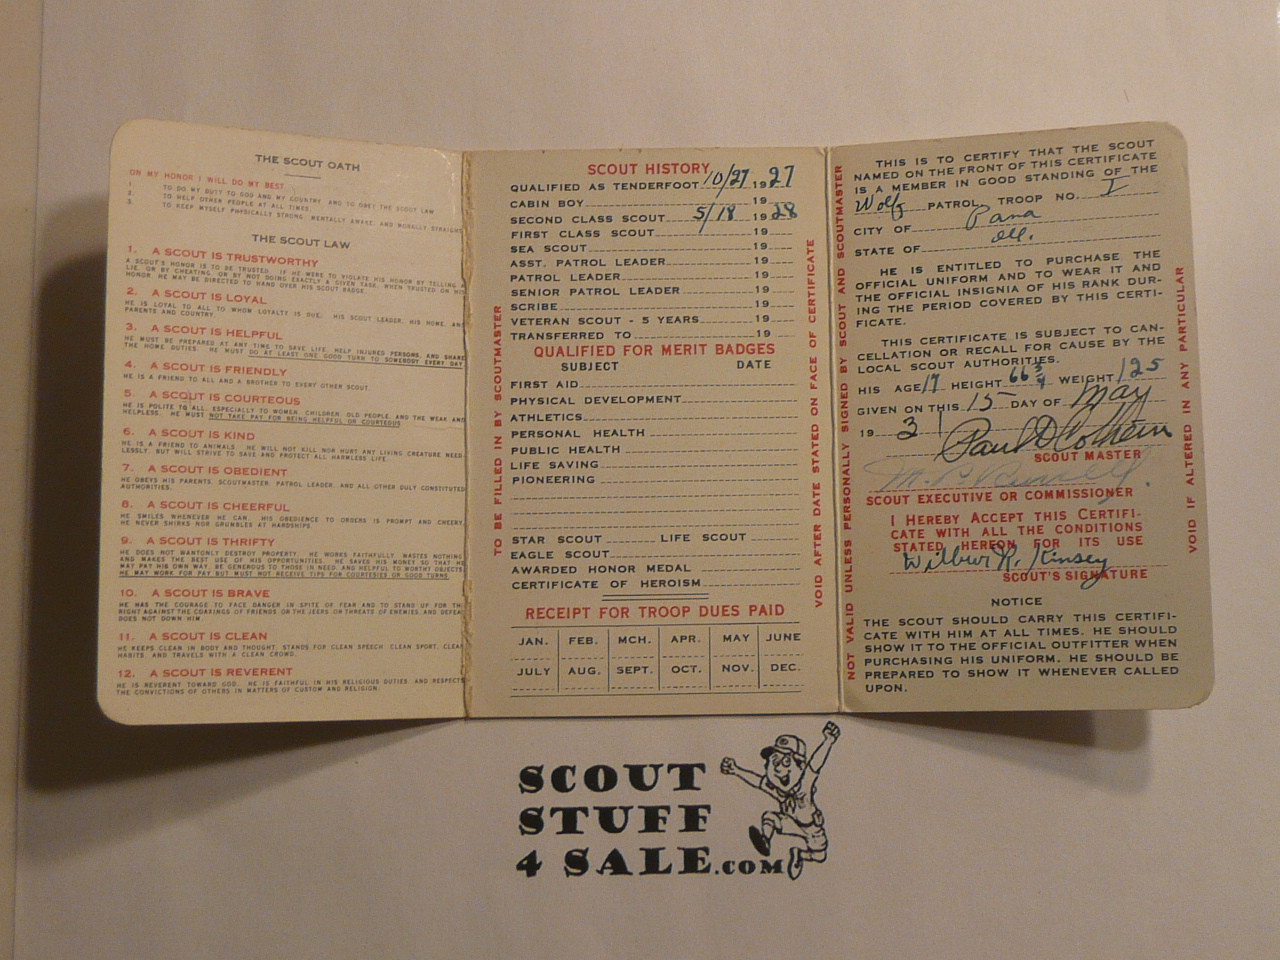 THE SCOUT OATH
ON MY HONOR I WILL DO MY BEST
1. TO DO MY DUTY TO GOD AND MY COUNTRY, AND TO OBEY THE SCOUT LAW
2. TO HELP OTHER PEOPLE AT ALL TIMES.
3. TO KEEP MYSELF PHYSICALLY STRONG, MENTALLY AWAKE, AND MORALLY STRAIGHT
THE SCOUT LAW
1. A SCOUT IS TRUSTWORTHY
A SCOUT'S HONOR IS TO BE TRUSTED. IF HE WERE TO VIOLATE HIS HONOR BY TELLING A
LIE, OR BY CHEATING, OR BY NOT DOING EXACTLY A GIVEN TASK, WHEN TRUSTED ON HIS
HONOR, HE MAY BE DIRECTED TO HAND OVER HIS SCOUT BADGE.
2. A SCOUT IS LOYAL
HE IS LOYAL TO ALL TO WHOM LOYALTY IS DUE, HIS SCOUT LEADER, HIS HOME, AND
PARENTS AND COUNTRY.
3. A SCOUT IS HELPFUL
HE MUST BE PREPARED AT ANY TIME TO SAVE LIFE, HELP INJURED PERSONS, AND SHARE
THE HOME DUTIES. HE MUST DO AT LEAST ONE GOOD TURN TO SOMEBODY EVERY DAY
4. A SCOUT IS FRIENDLY
HE IS A FRIEND TO ALL AND A BROTHER TO EVERY OTHER SCOUT.
5. A SCOUT IS COURTEOUS
HE IS POLITE TO ALL, ESPECIALLY TO WOMEN, CHILDREN, OLD PEOPLE, AND THE WEAK AND
HELPLESS. HE MUST NOT TAKE PAY FOR BEING HELPFUL OR COURTEOUS
6. A SCOUT IS KIND
HE IS A FRIEND TO ANIMALS. HE WILL NOT KILL NOR HURT ANY LIVING CREATURE NEED-
LESSLY, BUT WILL STRIVE TO SAVE AND PROTECT ALL HARMLESS LIFE.
7. A SCOUT IS OBEDIENT
HE OBEYS HIS PARENTS, SCOUTMASTER, PATROL LEADER, AND ALL OTHER DULY CONSTITUTED
AUTHORITIES.
8. A SCOUT IS CHEERFUL
HE SMILES WHENEVER HE CAN. HIS OBEDIENCE TO ORDERS IS PROMPT AND CHEERY.
HE NEVER SHIRKS NOR GRUMBLES AT HARDSHIPS.
9. A SCOUT IS THRIFTY
HE DOES NOT WANTONLY DESTROY PROPERTY. HE WORKS FAITHFULLY, WASTES NOTHING
AND MAKES THE BEST USE OF HIS OPPORTUNITIES. HE SAVES HIS MONEY SO THAT HE
MAY PAY HIS OWN WAY, BE GENEROUS TO THOSE IN NEED, AND HELPFUL TO WORTHY OBJECTS.
HE MAY WORK FOR PAY BUT MUST NOT RECEIVE TIPS FOR COURTESIES OR GOOD TURNS.
10. A SCOUT IS BRAVE
HE HAS THE COURAGE TO FACE DANGER IN SPITE OF FEAR AND TO STAND UP FOR THE
RIGHT AGAINST THE COAXINGS OF FRIENDS OR THE JEERS OR THREATS OF ENEMIES, AND DEFEAT
DOES NOT DOWN HIM.
11. A SCOUT IS CLEAN
HE KEEPS CLEAN IN BODY AND THOUGHT, STANDS FOR CLEAN SPEECH, CLEAN SPORT, CLEAN
HABITS, AND TRAVELS WITH A CLEAN CROWD.
12. A SCOUT IS REVERENT
HE IS REVERENT TOWARD GOD. HE IS FAITHFUL IN HIS RELIGIOUS DUTIES, AND RESPECTS
THE CONVICTIONS OF OTHERS IN MATTERS OF CUSTOM AND RELIGION.
TO BE FILLED IN BY SCOUTMASTER
SCOUT HISTORY
QUALIFIED AS TENDERFOOT 10/27 1927
CABIN BOY 19
SECOND CLASS SCOUT 5/18 1928
FIRST CLASS SCOUT 19
SEA SCOUT 19
ASST. PATROL LEADER 19
PATROL LEADER 19
SENIOR PATROL LEADER 19
SCRIBE 19
VETERAN SCOUT - 5 YEARS 19
TRANSFERRED TO 19
QUALIFIED FOR MERIT BADGES
SUBJECT DATE
FIRST AID
PHYSICAL DEVELOPMENT
ATHLETICS
PERSONAL HEALTH
PUBLIC HEALTH
LIFE SAVING
PIONEERING
STAR SCOUT LIFE SCOUT
EAGLE SCOUT
AWARDED HONOR MEDAL
CERTIFICATE OF HEROISM
RECEIPT FOR TROOP DUES PAID
JAN. FEB. MCH. APR. MAY JUNE
JULY AUG. SEPT. OCT. NOV. DEC.
VOID AFTER DATE STATED ON FACE OF CERTIFICATE
NOT VALID UNLESS PERSONALLY SIGNED BY SCOUT AND SCOUTMASTER
THIS IS TO CERTIFY THAT THE SCOUT
NAMED ON THE FRONT OF THIS CERTIFICATE
IS A MEMBER IN GOOD STANDING OF THE
Wolf PATROL, TROOP NO. I
CITY OF Pana
STATE OF Ill.
HE IS ENTITLED TO PURCHASE THE
OFFICIAL UNIFORM AND TO WEAR IT AND
THE OFFICIAL INSIGNIA OF HIS RANK DUR-
ING THE PERIOD COVERED BY THIS CERTI-
FICATE.
THIS CERTIFICATE IS SUBJECT TO CAN-
CELLATION OR RECALL FOR CAUSE BY THE
LOCAL SCOUT AUTHORITIES.
HIS AGE 17 HEIGHT 66 3/4 WEIGHT 125
GIVEN ON THIS 15 DAY OF May
19 31 Paul D
SCOUT MASTER
SCOUT EXECUTIVE OR COMMISSIONER
I HEREBY ACCEPT THIS CERTIFI-
CATE WITH ALL THE CONDITIONS
STATED HEREON FOR ITS USE
Wilbur R. Kinsey
SCOUT'S SIGNATURE
NOTICE
THE SCOUT SHOULD CARRY THIS CERTIFI-
CATE WITH HIM AT ALL TIMES. HE SHOULD
SHOW IT TO THE OFFICIAL OUTFITTER WHEN
PURCHASING HIS UNIFORM. HE SHOULD BE
PREPARED TO SHOW IT WHENEVER CALLED
UPON.
VOID IF ALTERED IN ANY PARTICULAR
SCOUT
STUFF
4 SALE.COM